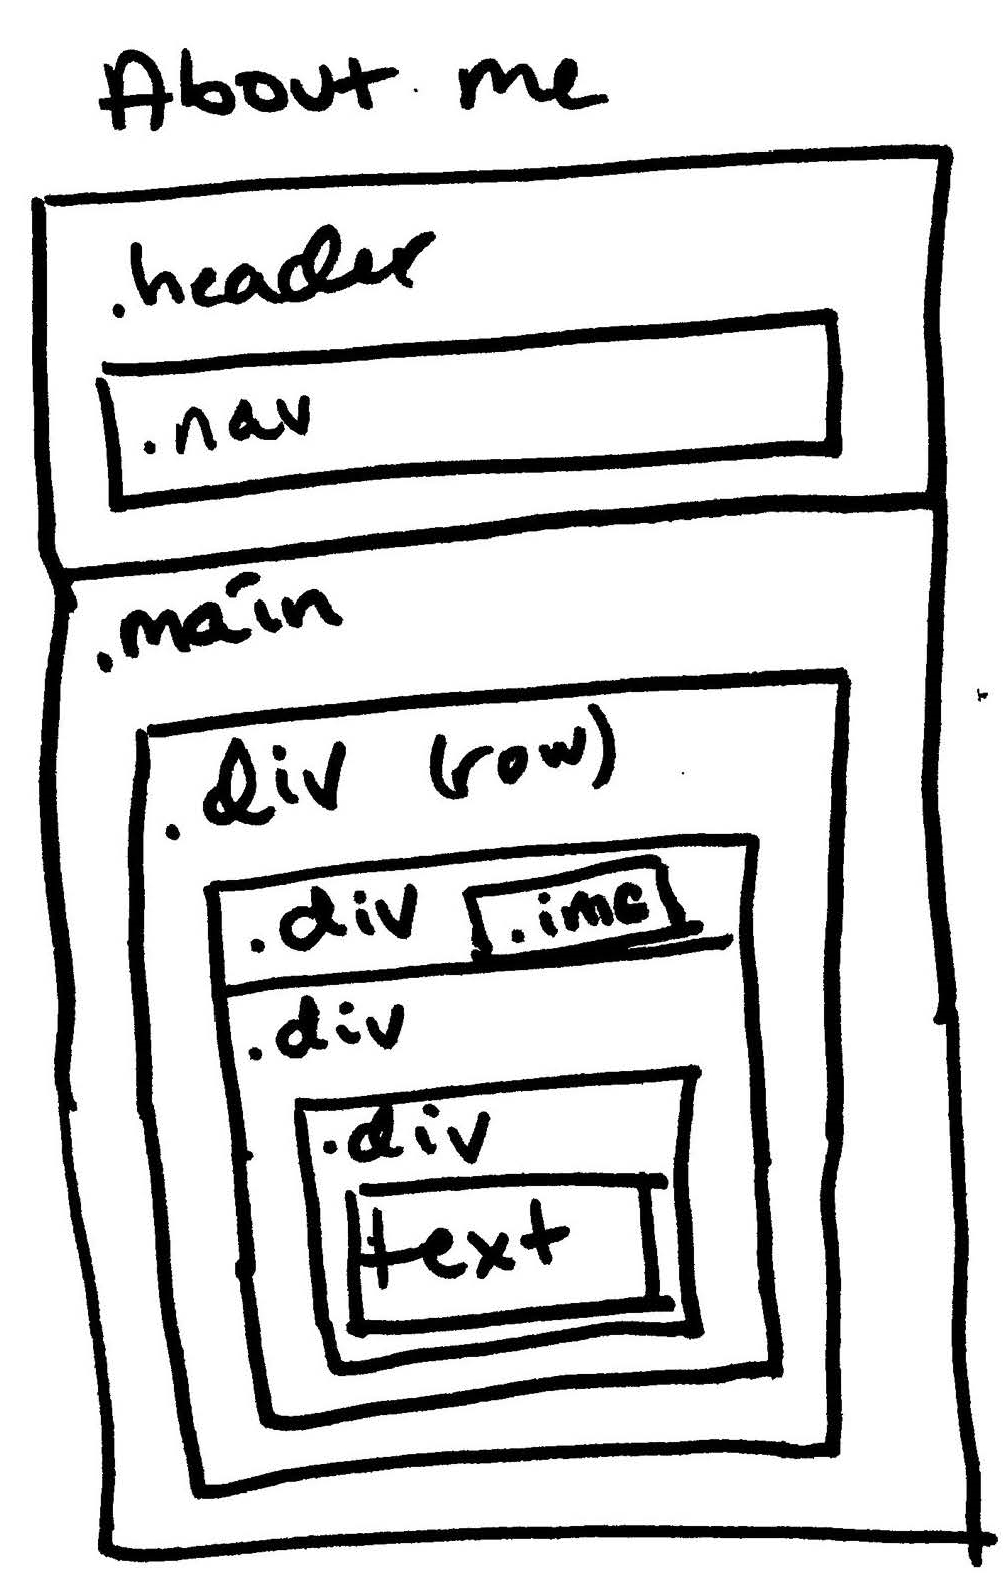 About me
.header
.nav
.main
.div (row)
.div .img
.div
.div
text